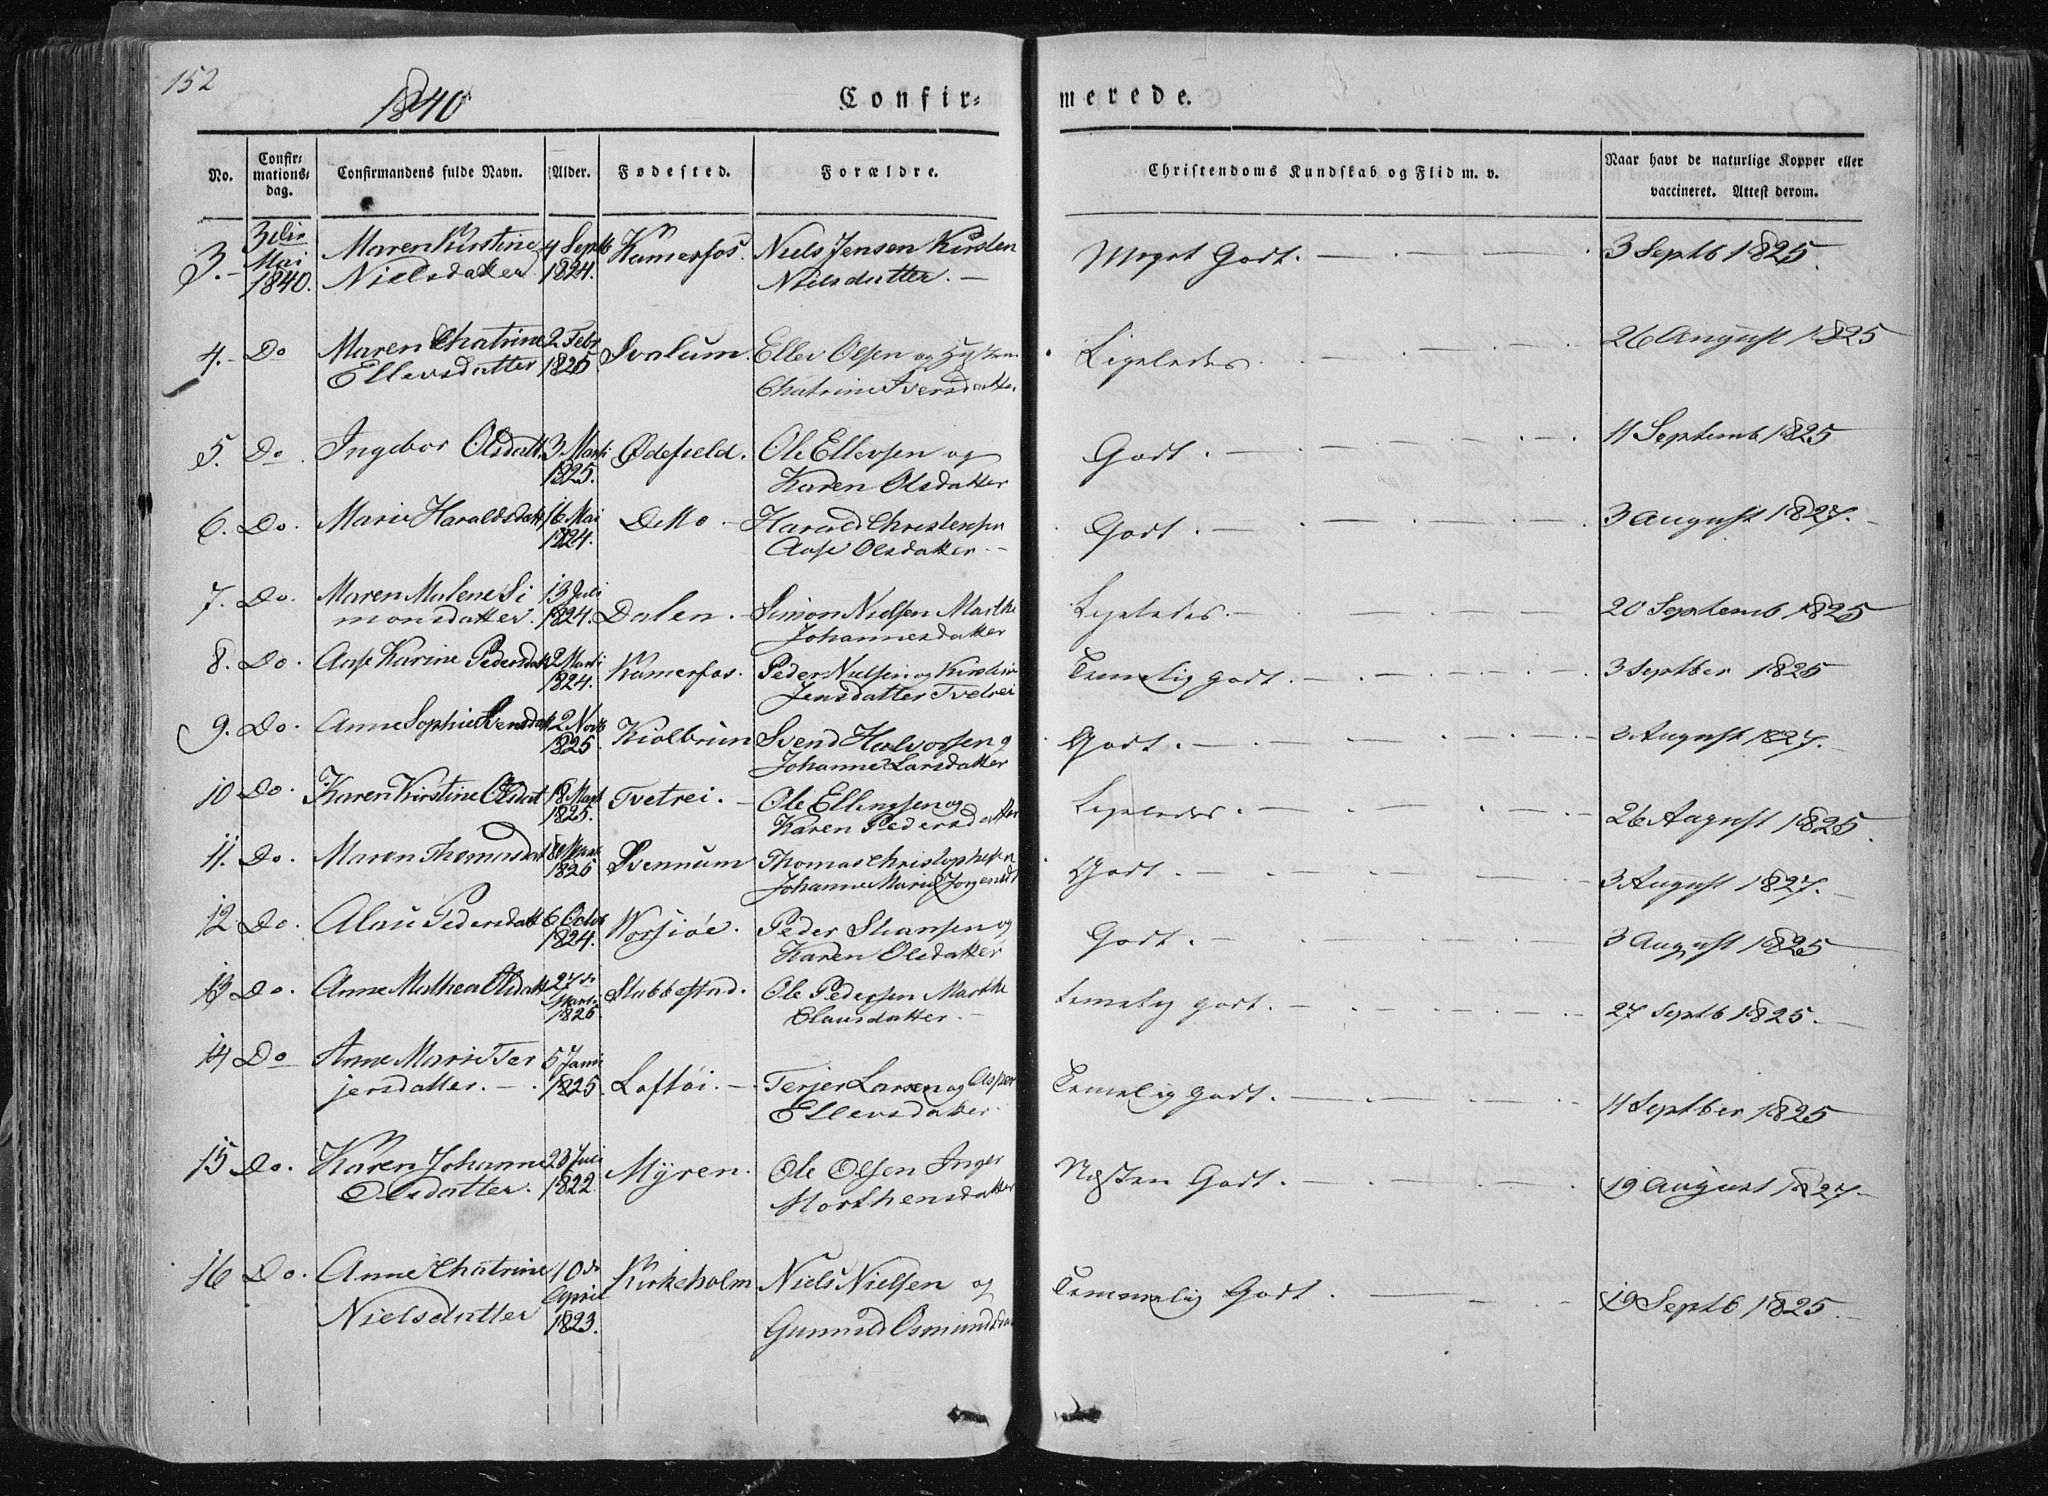 152
1840
Confir-
merede.
No.
Confir-
mations-
dag.
Confirmandens fulde Navn.
Alder.
Fødested.
Forældre.
Christendoms Kundskab og Flid m. v.
Naar havt de naturlige Kopper eller
vaccineret. Attest derom.
3. 3die Maren Kirstine 4 Septb Kamerfos. Niels Jensen Kirsten Meget Godt. 3 Septb 1825.
Mai Nielsdatter 1824. Nielsdatter.
1840.
4. Do Maren Chatrine 2 Febr Svalum Ellev Olsen og Ligeledes 26 August 1825
Ellevsdatter 1825 Chatrine Iversdatter
5. Do Ingebor Olsdatt 3 Marti Ødefield. Ole Ellevsen og Godt. 11 Septemb 1825
1825. Karen Olsdatter
6. Do. Marie Haraldsdatt 16 Mai Detto Harald Christensen Godt. 3 August 1827.
1824. Aase Olsdatter
7. Do. Maren Malene Si 13 Juli Dalen. Simon Nielsen Marthe Ligeledes. 20 Septemb 1825
monsdatter. 1824. Johannesdatter
8. Do. Aase Karine Pedersdatt 2 Marti Kamerfos. Peder Nielsen og Kirstine Temelig godt. 3 Septber 1825
1824. Jensdatter Tvetrei
9. Do. Anne Sophie Svensdatt 2 Novb Kiolbrun Svend Halvorsen og Godt. 3 August 1827.
1825. Johanne Larsdatter
10 Do. Karen Kirstine Olsdat 18 Mart Tvetrei. Ole Ellingsen og Ligeledes 26 August 1825.
1825. Karen Pedersdatter
11. Do. Maren Thomasdat 18 Mart Svennum Thomas Christophersen Godt. 3 August 1827.
1825 Johanne Marie Jørgensdt
12 Do. Alau Pedersdatt 6 Octob Vorsiøe. Peder Svansen og Godt. 3 August 1825
1824. Karen Olsdatter
13 Do. Anne Mathea Olsdatt 27de Stabbestad. Ole Pedersen Marthe temelig godt. 27 Septb 1825.
Marti Clausdatter
1825.
14 Do Anne Marie Ter 5 Janu Loftøi. Terjer Larsen og Asper Temelig godt. 11 Septber 1825
jersdatter. 1825. Ellevsdatter
15 Do. Karen Johanne 23 Juli Myren. Ole Olsen Inger Næsten Godt. 19 August 1827.
Olsdatter. 1822. Morthensdatter
16 Do. Anne Chatrine 10de Kirkeholm Niels Nielsen og Temmelig Godt. 19 Septb 1825.
Nielsdatter April Gunnild Osmundsdat
1823.